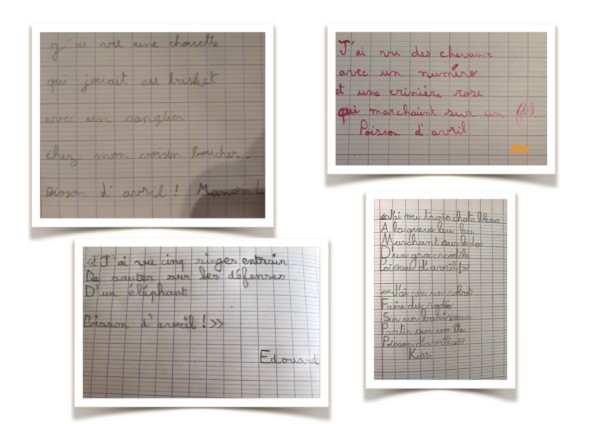 J'ai vu une chouette
qui jouait au basket
avec un sanglier
chez mon voisin boucher.
oisson d'avril ! Manon
J'ai vu des chevaux
avec un numéro
et une crinière rose
qui marchaient sur un fil
Poisson d'avril
<<J'ai vu cinq singes entrain
De sauter sur les défenses
D'un éléphant
Poisson d'avril !>>
Edouard
<<J'ai vu trois chats bleus
A la queue leu leu
Marchant sur le dos
D'un gros crocodile
Poisson d'avril>>
<<J'ai vu un chat
Faire du rodéo
Sur un
Partir sur une île
Poisson d'avril>>